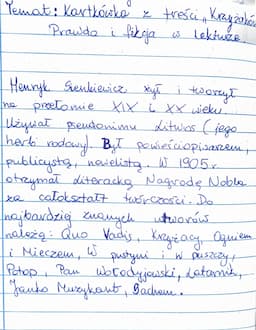 Temat: Kartkówka z treści „Krzyżaków
Prawda i fikcja w lekturze.
Henryk Sienkiewicz żył i tworzył
na przełomie XIX i XX wieku.
Używał pseudonimu Litwos (jego
herb rodowy). Był powieściopisarzem,
publicystą, nowelistą. W 1905r.
otrzymał Literacką Nagrodę Nobla
za całokształt twórczości. Do
najbardziej znanych utworów
należą: Quo Vadis, Krzyżacy, Ogniem
i Mieczem, W pustyni i w puszczy,
Potop, Pan Wołodyjowski, Latarnik,
Janko Muzykant, Sachem.